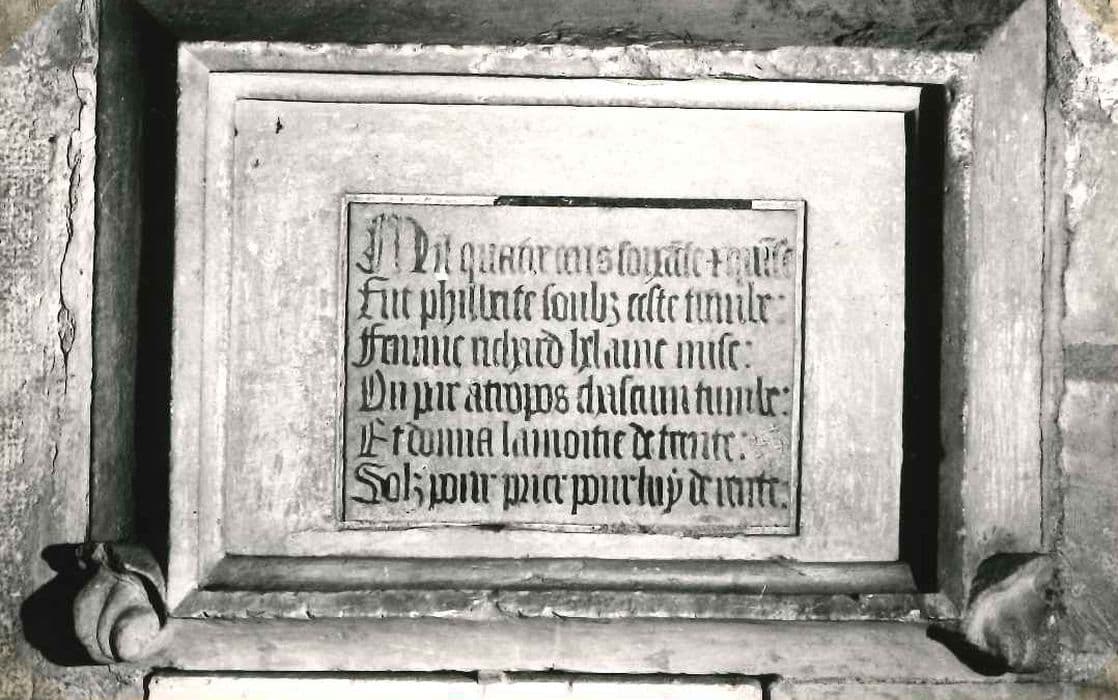 Mil quatre cens soixãte + quīse
Fut philberte soubz ceste tumbe :
Femme richard belaine mise :
Ou par atropos chascun tumbe :
Et donna la moitie de trente :
Solz pour prier pour luy de rente :